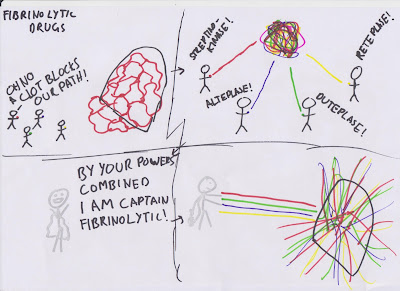 FIBRINOLYTIC
DRUGS
OH NO
A CLOT BLOCKS
OUR PATH!
STREPTO-
KINASE!
ALTEPLASE!
DUTEPLASE!
RETEPLASE!
BY YOUR POWERS
COMBINED
I AM CAPTAIN
FIBRINOLYTIC!